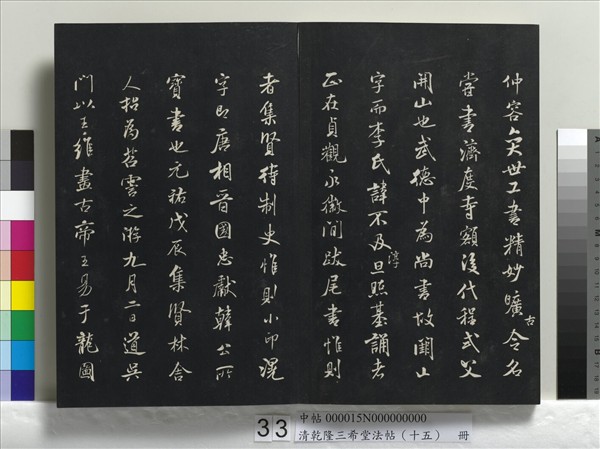 仲容奕世工書精妙曠古令名
嘗書濟度寺額後代程式父
開山也武德中為尚書故闕山
字而李氏諱不及旦照基誦淳者
正在貞觀永徽間跋尾書惟則
者集賢待制史惟則小印滉
字即唐相晉國忠獻韓公所
寶書也元祐戊辰集賢林舍
人招為苕霅之游九月二日道吳
門以王維畫古帝王易于龍圖
33
中帖 000015N000000000
清乾隆三希堂法帖(十五) 冊